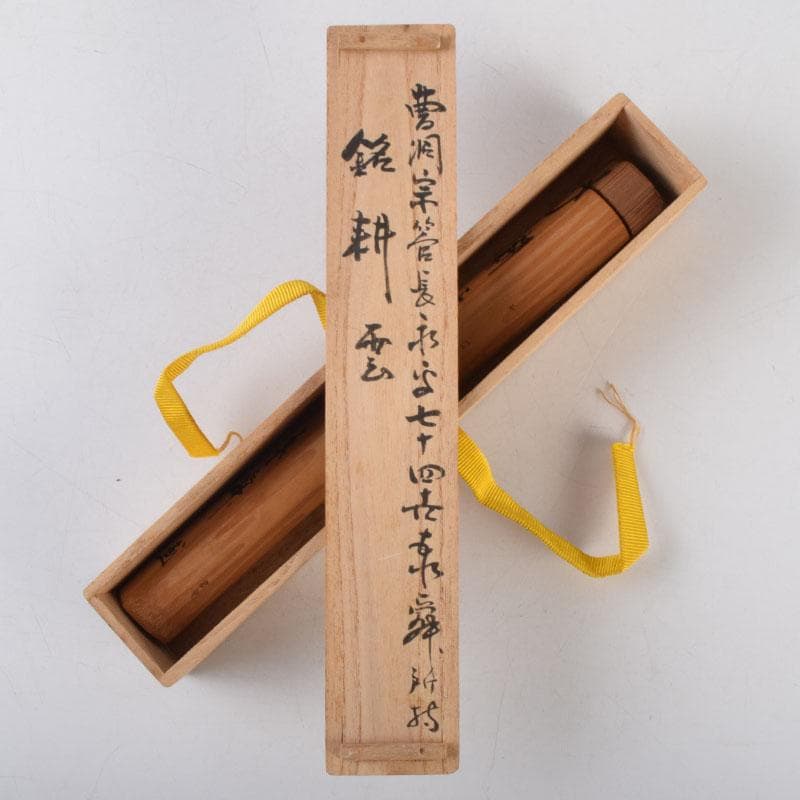 曹洞宗管長永平七十四世泰舜所持
銘耕雲